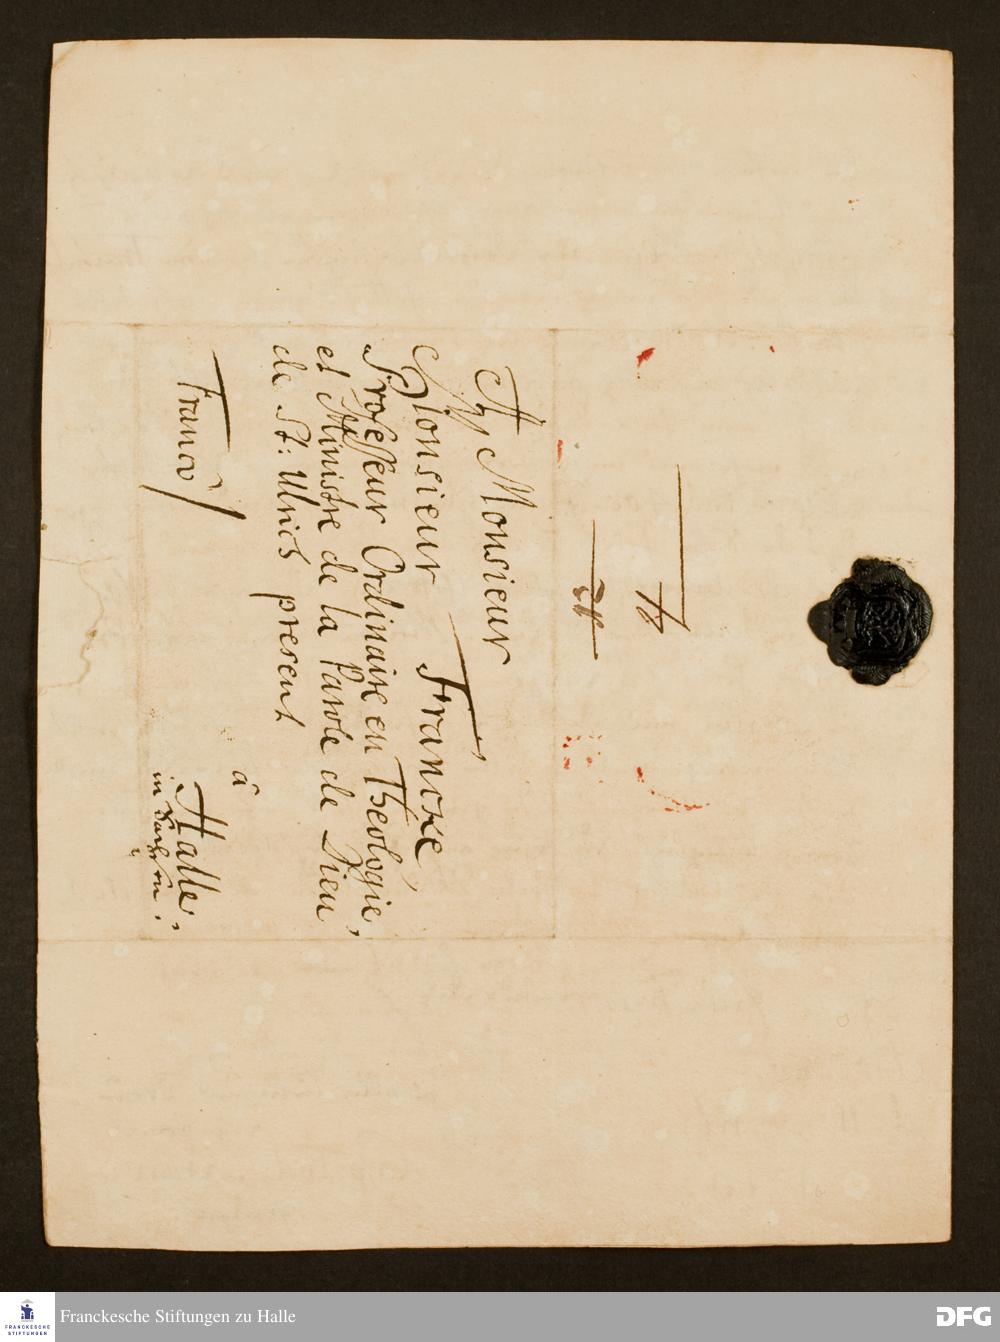 A Monsieur
Monsieur Francke,
Professeur Ordinaire en Theologie,
et Ministre de la Parole de Dieu
de St: Ulric present
Franco
â
Halle,
in Sachsen.
Franckesche Stiftungen zu Halle
FRANCKESCHE
STIFTUNGEN
DFG